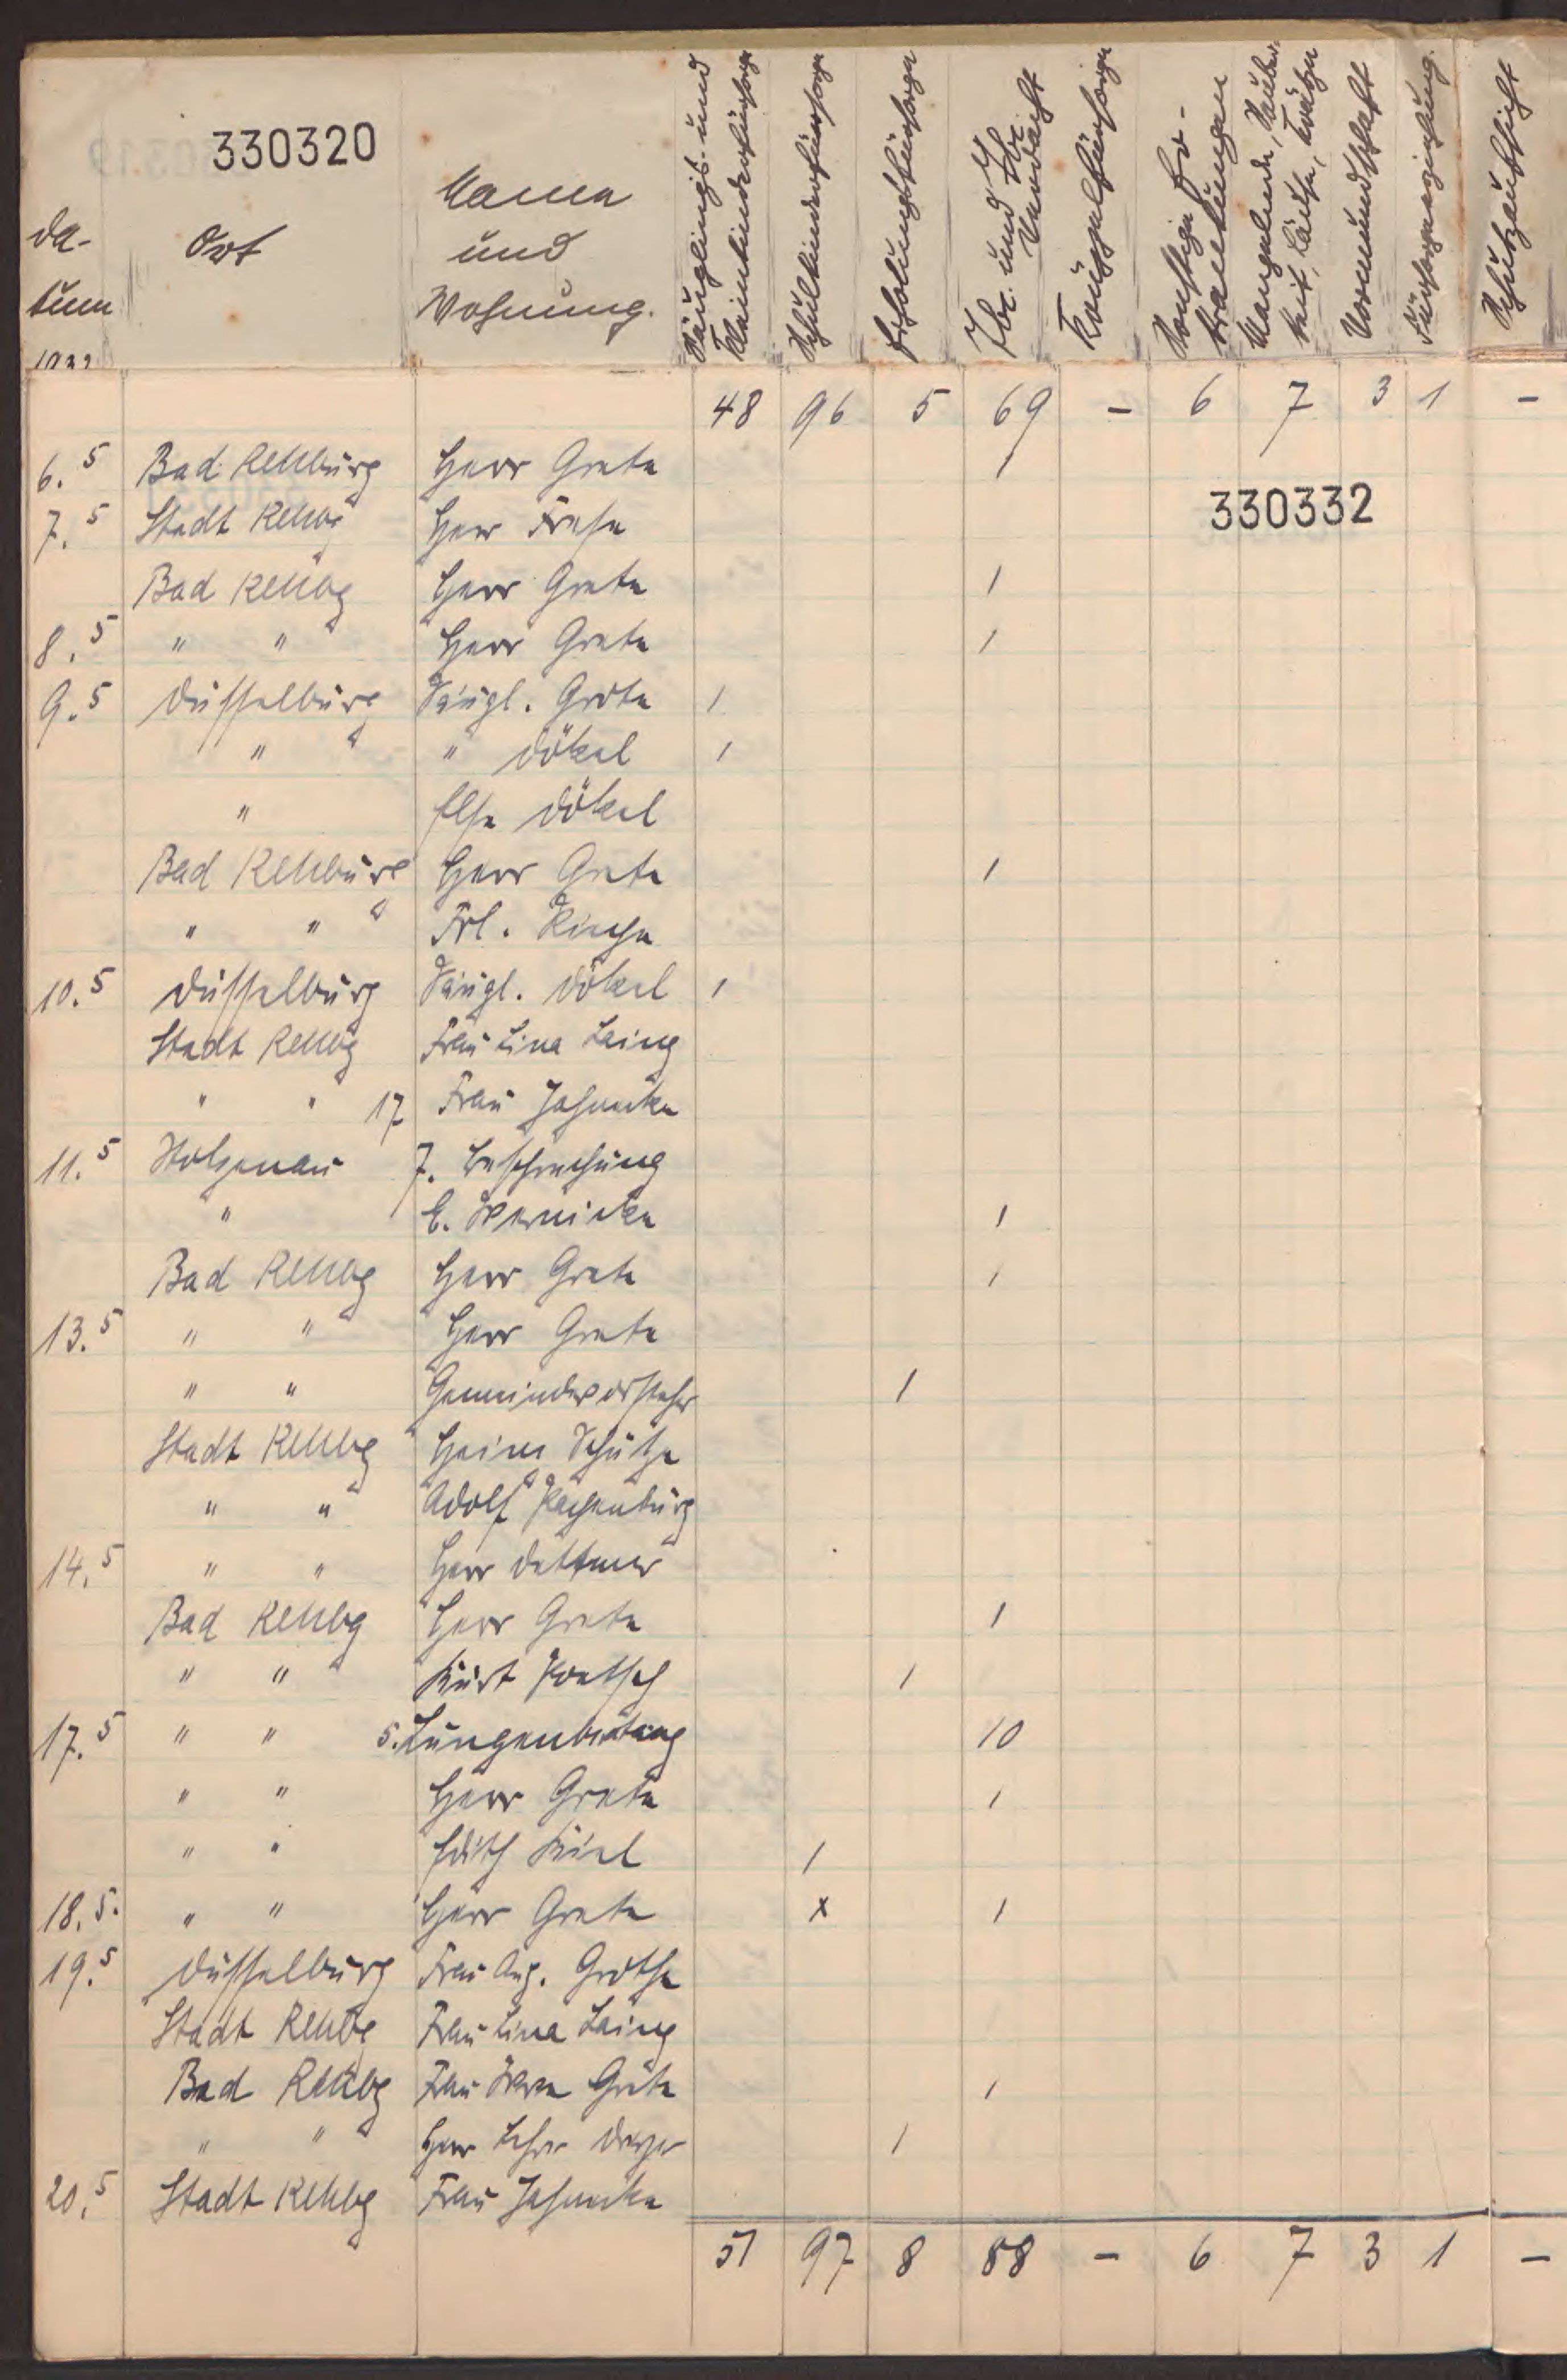 330320
Da-
tum
1932
Ort
Namen
und
Wohnung.
Säuglings- und
Kleinkinderfürsorge
Schulkinderfürsorge
Erholungsfürsorge
Tbc. und Tbc.
Verdacht
Krüppelfürsorge
Sonstige Er-
krankungen
Mangelnde Sauber-
keit, Läuse, Krätze
Vormundschaft
Fürsorgeerziehung.
Schutzaufsicht
48 96 5 69 - 6 7 3 1 -
6.5 Bad Rehburg Herr Grete 1
330332
7.5 Stadt Rehbg Herr Frese
Bad Rehbg Herr Grete 1
8.5 " " Herr Grete 1
9.5 Düsselburg Säugl. Grote 1
" " Dökel 1
" Else Dökel
Bad Rehburg Herr Grete 1
" " Frl. Rinche
10.5 Düsselburg Säugl. Dökel 1
Stadt Rehbg Frau Lina Laing
" " 17 Frau Jahneke
11.5 Stolzenau 7. Besprechung
" E. Wernicke 1
Bad Rehbg Herr Grete 1
13.5 " " Herr Grete
" " Gemeindevorsteher 1
Stadt Rehbg Heinr Schütze
" " Adolf Hachenburg
14.5 " " Herr Dettmer
Bad Rehbg Herr Grete 1
" " Kurt Poetsch 1
17.5 " " 5. Lungenberatung 10
" " Herr Grete 1
" " Edith Kiel 1
18.5. " " Herr Grete x 1
19.5 Düsselburg Frau Aug. Grothe
Stadt Rehbg Frau Lina Laing
Bad Rehbg Frau Wwe Grete 1
" " Herr Lehrer Dreyer 1
20.5 Stadt Rehbg Frau Jahneke
51 97 8 88 - 6 7 3 1 -